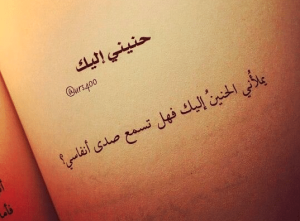 حنيني إليك
@urs400
يملأُني الحنينُ إليك فهل تسمع صدى أنفاسي؟